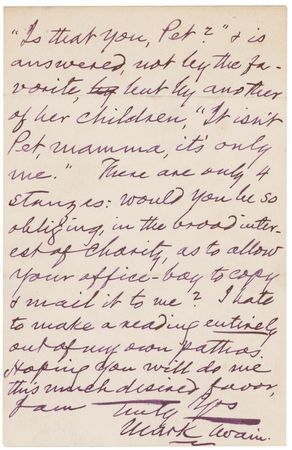 "Is that you, Pet?" & is
answered, not by the fa-
vorite, by but by another
of her children, "It isn't
Pet, mamma, it's only
me." There are only 4
stanzas: would you be so
obliging, in the broad inter-
est of Charity, as to allow
your office-boy to copy
& mail it to me? I hate
to make a reading entirely
out of my own pathos.
Hoping you will do me
this much desired favor,
I am Truly Yrs
Mark Twain.